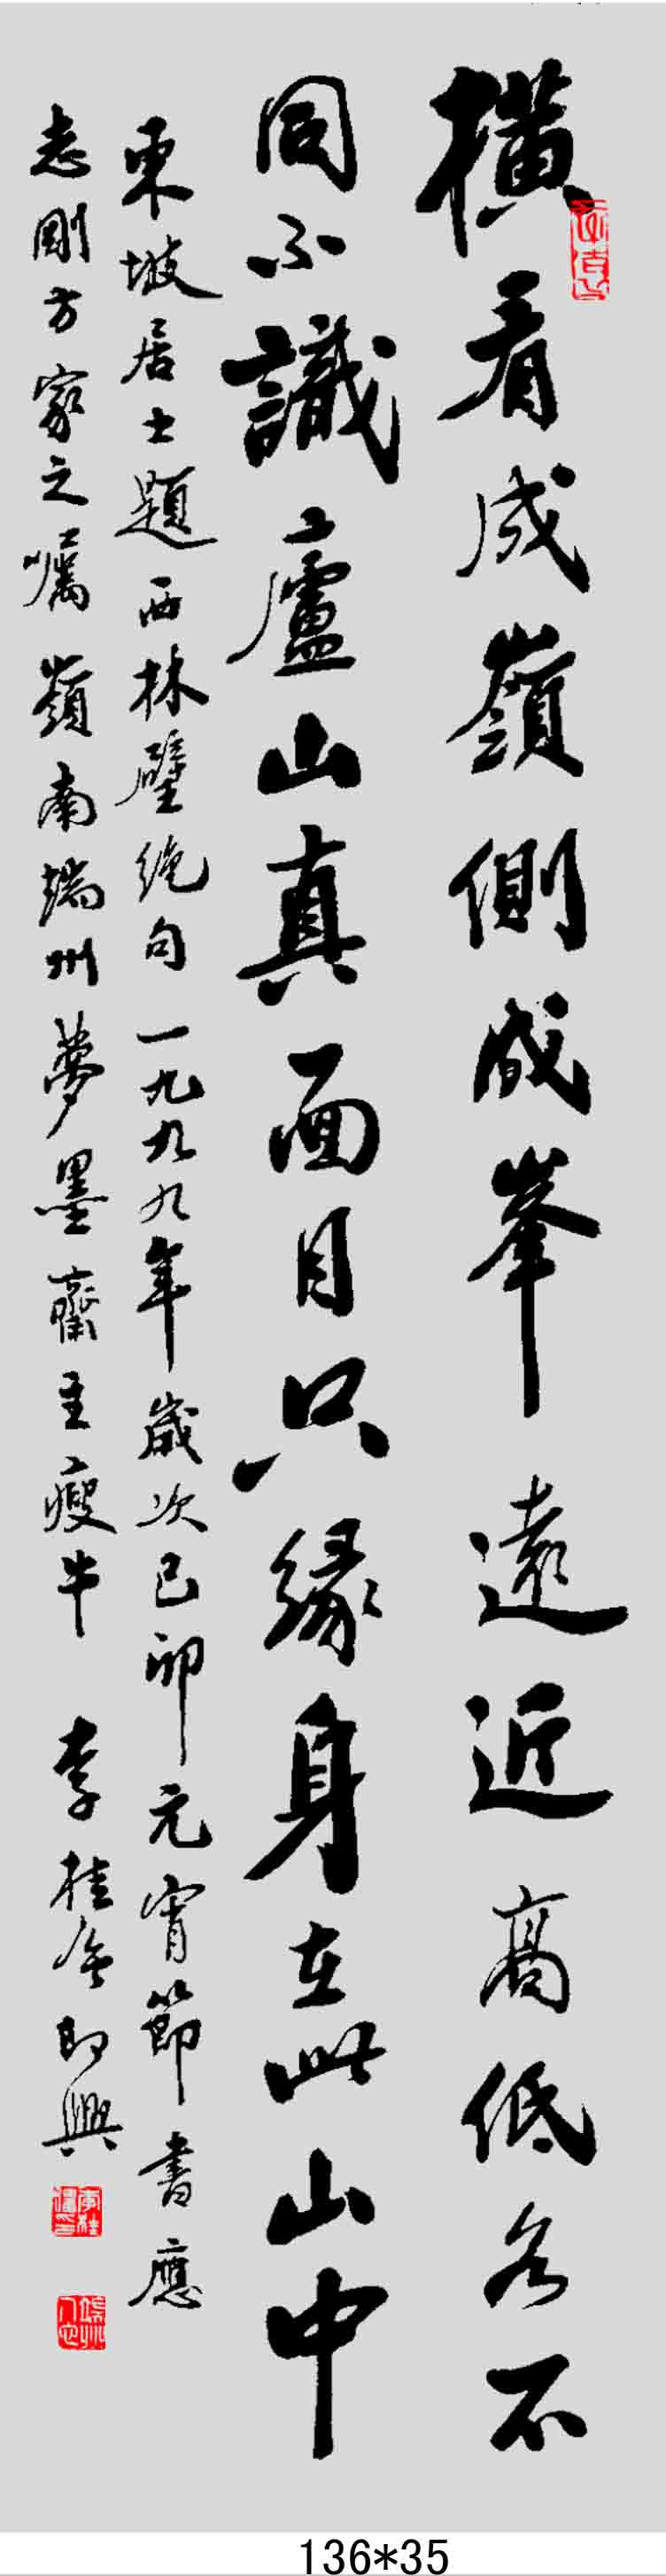 橫看成嶺側成峯遠近高低各不
同不識廬山真面目只緣身在此山中
東坡居士題西林壁絶句一九九九年歲次己卯元宵節書應
志剛方家之嘱嶺南端州夢墨齋主瘦牛李桂金即興
136*35